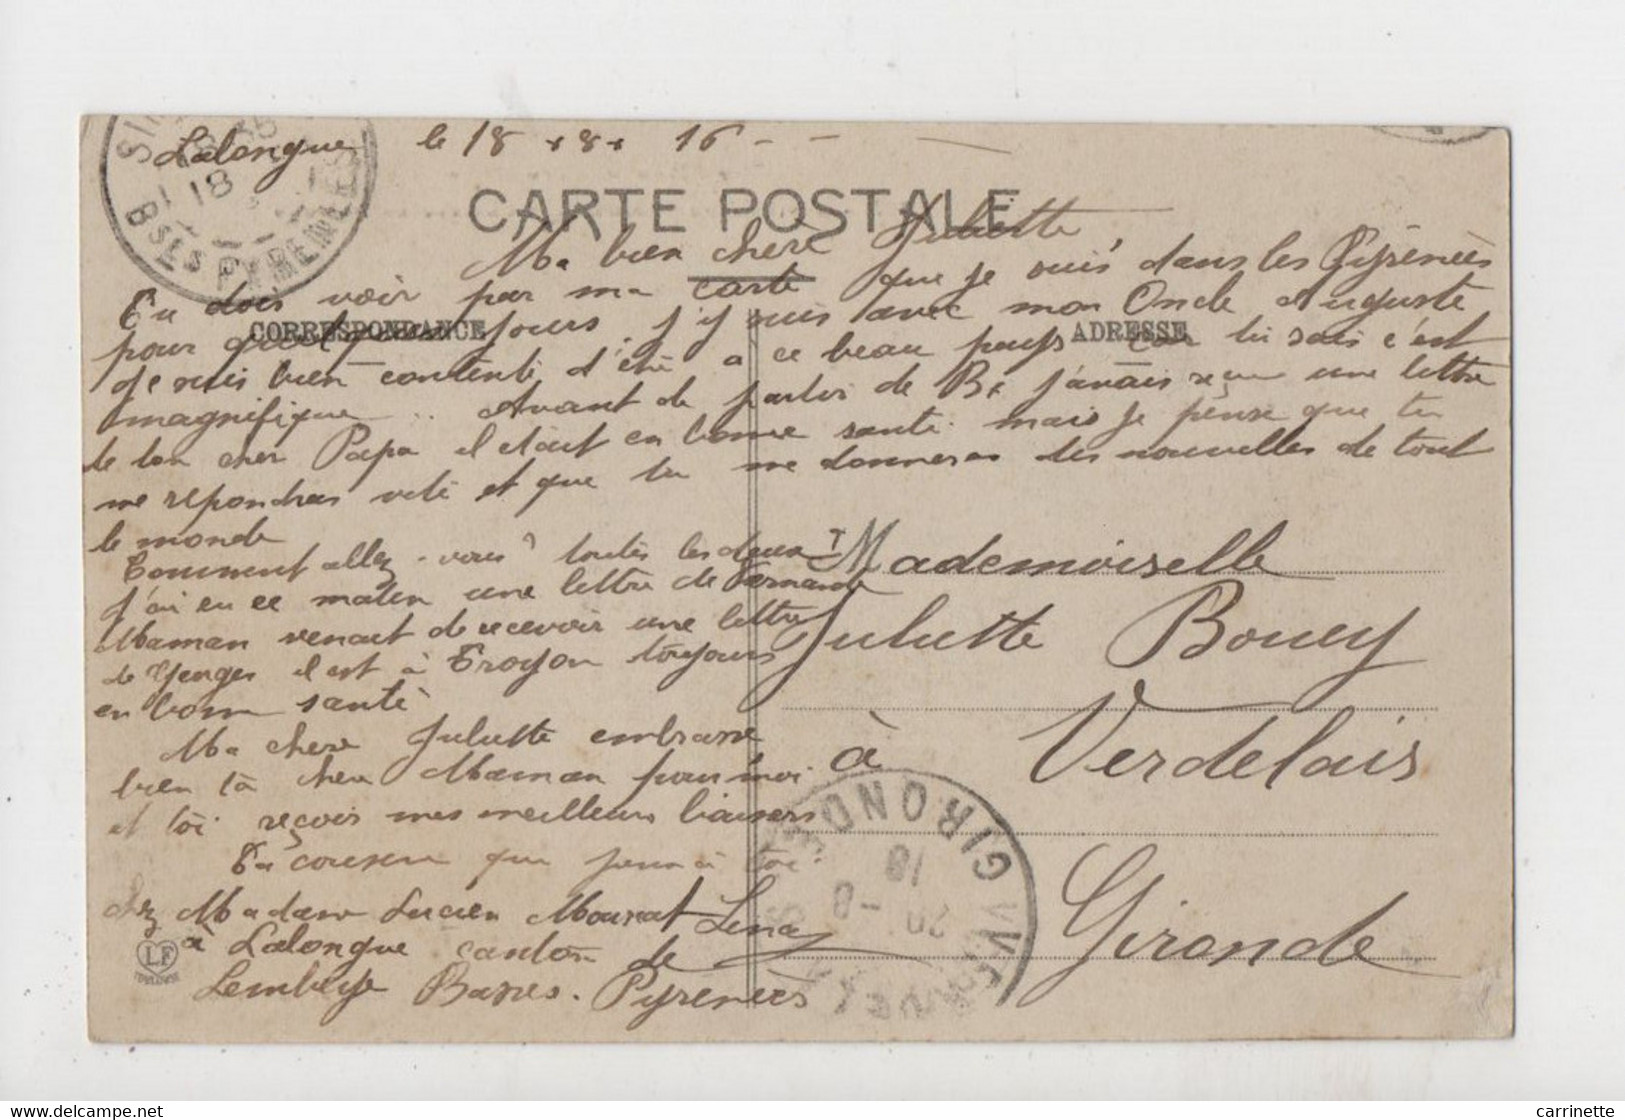 Lalongue le 18 + 8 + 16
CARTE POSTALE
Ma bien chere Juliette
Tu dois voir par ma carte que je suis dans les Pyrénèès
CORRESPONDANCE
ADRESSE
pour quelques jours, j'y suis avec mon Oncle Auguste
je suis bien contente d'été a ce beau pays car tu sais c'est
magnifique .. Avant de partir de Bx j'avais reçu une lettre
de ton cher Papa il etait en bonne santé. mais je pense que tu
me repondras vite et que tu me donneras des nouvelles de tout
le monde
Comment allez-vous? toutes les deux
J'ai eu ce maten une lettre de Fernande
Maman venait de recevoir une lettre
de Georges il est à Troyon toujours
en bonne santé
Ma chere Juliette embrasse
bien ta chere Maman pour moi
et toi reçois mes meilleurs baisers
Ta cousine qui pense à toi.
Lena
chez Madame Lucien Mourat
à Lalongue canton de
Lembeye Basses. Pyrenèès
Mademoiselle
Juliette Bouey
à Verdelais
Gironde
BSES PYRENEES
18
GIRONDE
20 -8
18
LF
carrinette